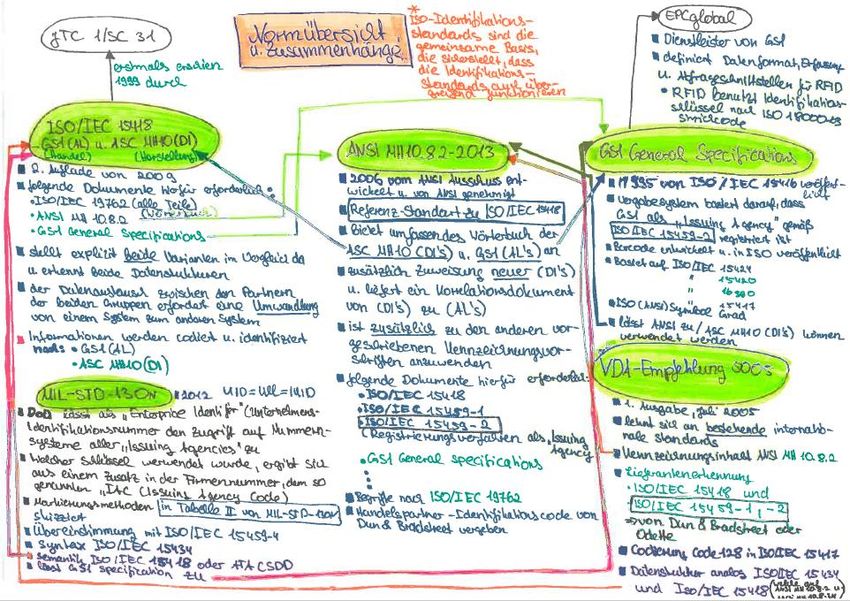 JTC 1/SC 31
erstmals erschien
1999 durch
Normübersicht
u. Zusammenhänge
* ISO-Identifikations-
standards sind die
gemeinsame Basis,
die sicherstellt, dass
die Identifikations-
standards auf über-
greifend funktionieren
EPCglobal
Dienstleister von GS1
definiert Datenformat, Erfassung
u. Abfrageschnittstellen für RFID
RFID benutzt Identifikation-
schlüssel nach ISO 18000 ≙
Strichcode
ISO/IEC 15418
GS1 (AL) u. ASC MH10 (DI)
(Handel) (Herstellung)
2. Auflage von 2009
folgende Dokumente hierfür erforderlich:
ISO/IEC 19762 (alle Teile)
ANSI MH 10.8.2 (Wörterbuch)
GS1 General Specifications
stellt explizit beide Varianten im Vergleich da
u. erkennt beide Datenstrukturen
der Datenaustausch zwischen den Partnern
der beiden Gruppen erfordert eine Umwandlung
von einem System zum anderen System
Informationen werden codiert u. identifiziert
nach: • GS1 (AL)
• ASC MH10 (DI)
MIL-STD-130N
2012 UID=UII=IUID
DoD lässt als "Enterprise Identifier" (Unternehmens-
Identifikationsnummer den Zugriff auf Nummern-
systeme aller "Issuing Agencies" zu
Welcher Schlüssel verwendet wurde, ergibt sich
aus einem Zusatz in der Firmennummer, dem so
genannten "IAC (Issuing Agency Code)
Markierungsmethoden in Tabelle II von MIL-STD-130N
skizziert
Übereinstimmung mit ISO/IEC 15459-4
Syntax ISO/IEC 15434
Semantik ISO/IEC 15418 oder ATA CSDD
lässt GS1 Specification zu
ANSI MH10.8.2-2013
2006 vom ANSI Ausschuss ent-
wickelt u. von ANSI genehmigt
Referenz-Standart zu ISO/IEC 15418
bietet umfassendes Wörterbuch der
ASC MH10 (DI's) u. GS1 (AL's) an
zusätzlich Zuweisung neuer (DI's)
u. liefert ein Korrelationsdokument
von (DI's) zu (AL's)
ist zusätzlich zu den anderen vor-
geschriebenen Kennzeichnungsvor-
schriften anzuwenden
folgende Dokumente hierfür erforderlich:
ISO/IEC 15418
ISO/IEC 15459-1
ISO/IEC 15459-2
(Registrierungsverfahren als "Issuing
Agency
GS1 General specifications
Begriffe nach ISO/IEC 19762
Handelspartner-Identifikationscode von
Dun & Bradstreet vergeben
GS1 General Specifications
1995 von ISO/IEC 15416 veröffent-
licht
Vergabesystem basiert darauf, dass
GS1 als "Issuing Agency" gemäß
ISO/IEC 15459-2 registriert ist
Barcode entwickelt u. in ISO veröffentlicht
Basiert auf ISO/IEC 15424
" 15420
"
" 15417
ISO (ANSI) Symbol Grad
lässt ANSI zu / ASC MH10 (DI's) können
verwendet werden
VDA-Empfehlung 5005
1. Ausgabe, Juli 2005
lehnt sich an bestehende internatio-
nale Standards
Kennzeichnungsinhalt ANSI MH 10.8.2
Lieferantenerkennung
ISO/IEC 15418 und
ISO/IEC 15459-1, -2
⇒ von Dun & Bradstreet oder
Odette
Codierung Code 128 in ISO/IEC 15417
Datenstruktur analog ISO/IEC 15434
und ISO/IEC 15418